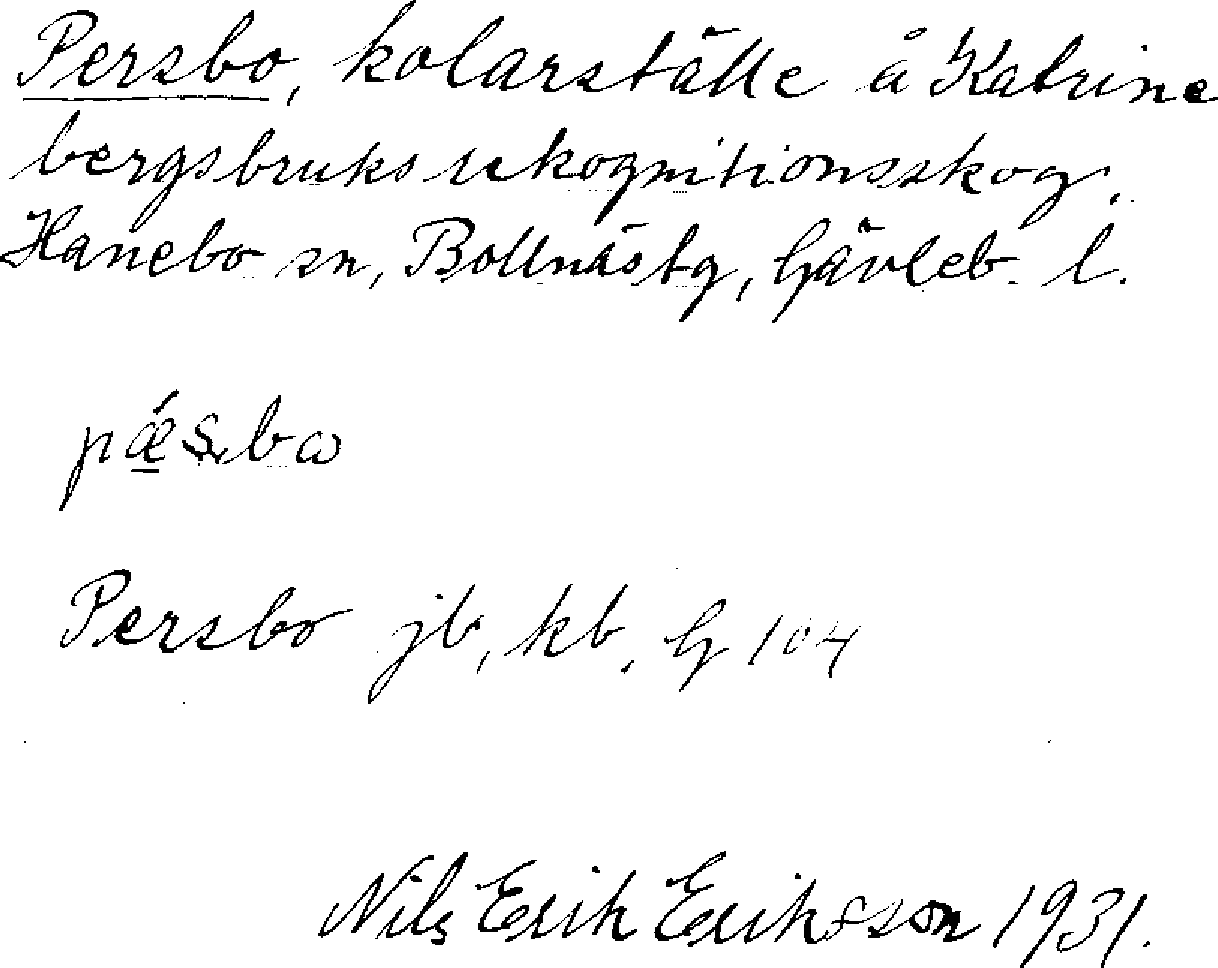 Persbo, kolarställe å Katrine
bergsbruks rekognitionsskog,
Hanebo sn, Bollnästg, Gävleb. l.
pǽsba
Persbo jb, kb, G 104
Nils Erik Eriksson 1931.